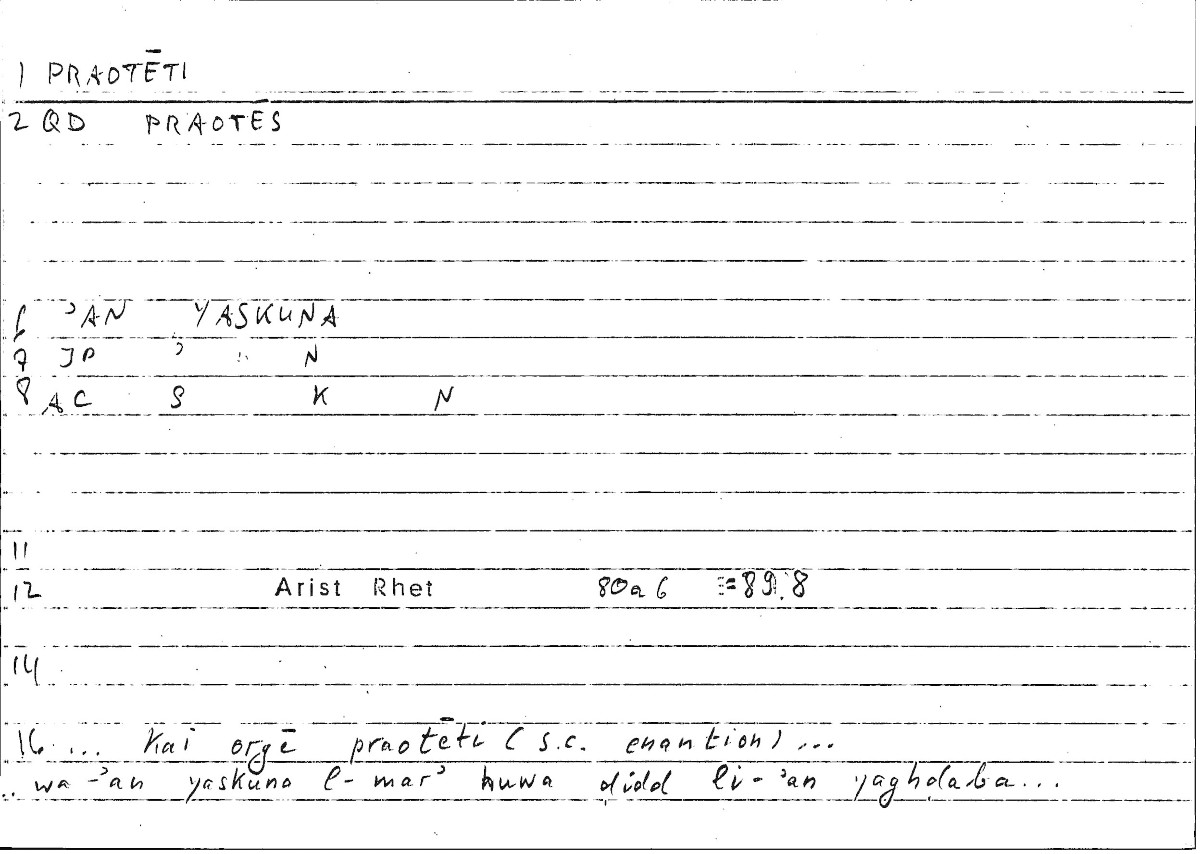 1 PRAOTĒTI
2 QD PRAOTĒS
6 ʾAN YASKUNA
7 JP ʾ .. N
8 AC S K N
11
12 Arist Rhet 80a6 =89,8
14
16 ... kai orgē praotēti (s.c. enantion) ...
.. wa-ʾan yaskuna l-marʾ huwa ḍidd li-ʾan yaghḍaba...